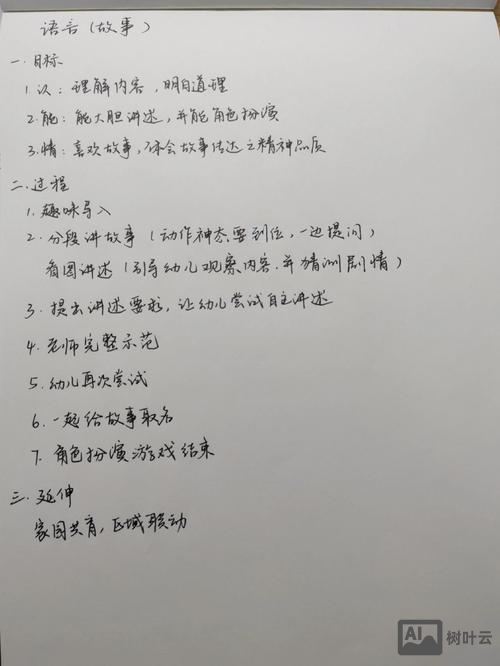 语言（故事）
一.目标
1.认：理解内容，明白道理
2.能：能大胆讲述，并能角色扮演
3.情：喜欢故事，体会故事传达之精神品质
二.过程
1.趣味导入
2.分段讲故事（动作神态要到位，一边提问）
看图讲述（引导幼儿观察内容.并猜测剧情）
3.提出讲述要求，让幼儿尝试自主讲述
4.老师完整示范
5.幼儿再次尝试
6.一起给故事取名
7.角色扮演游戏结束
三.延伸
家园共育，区域联动
AI 树叶云